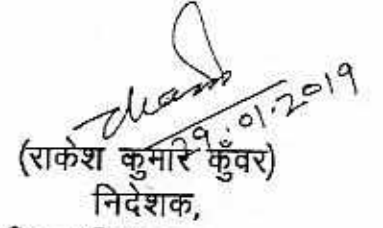 29.01.2019
(राकेश कुमार कुँवर)
निदेशक,